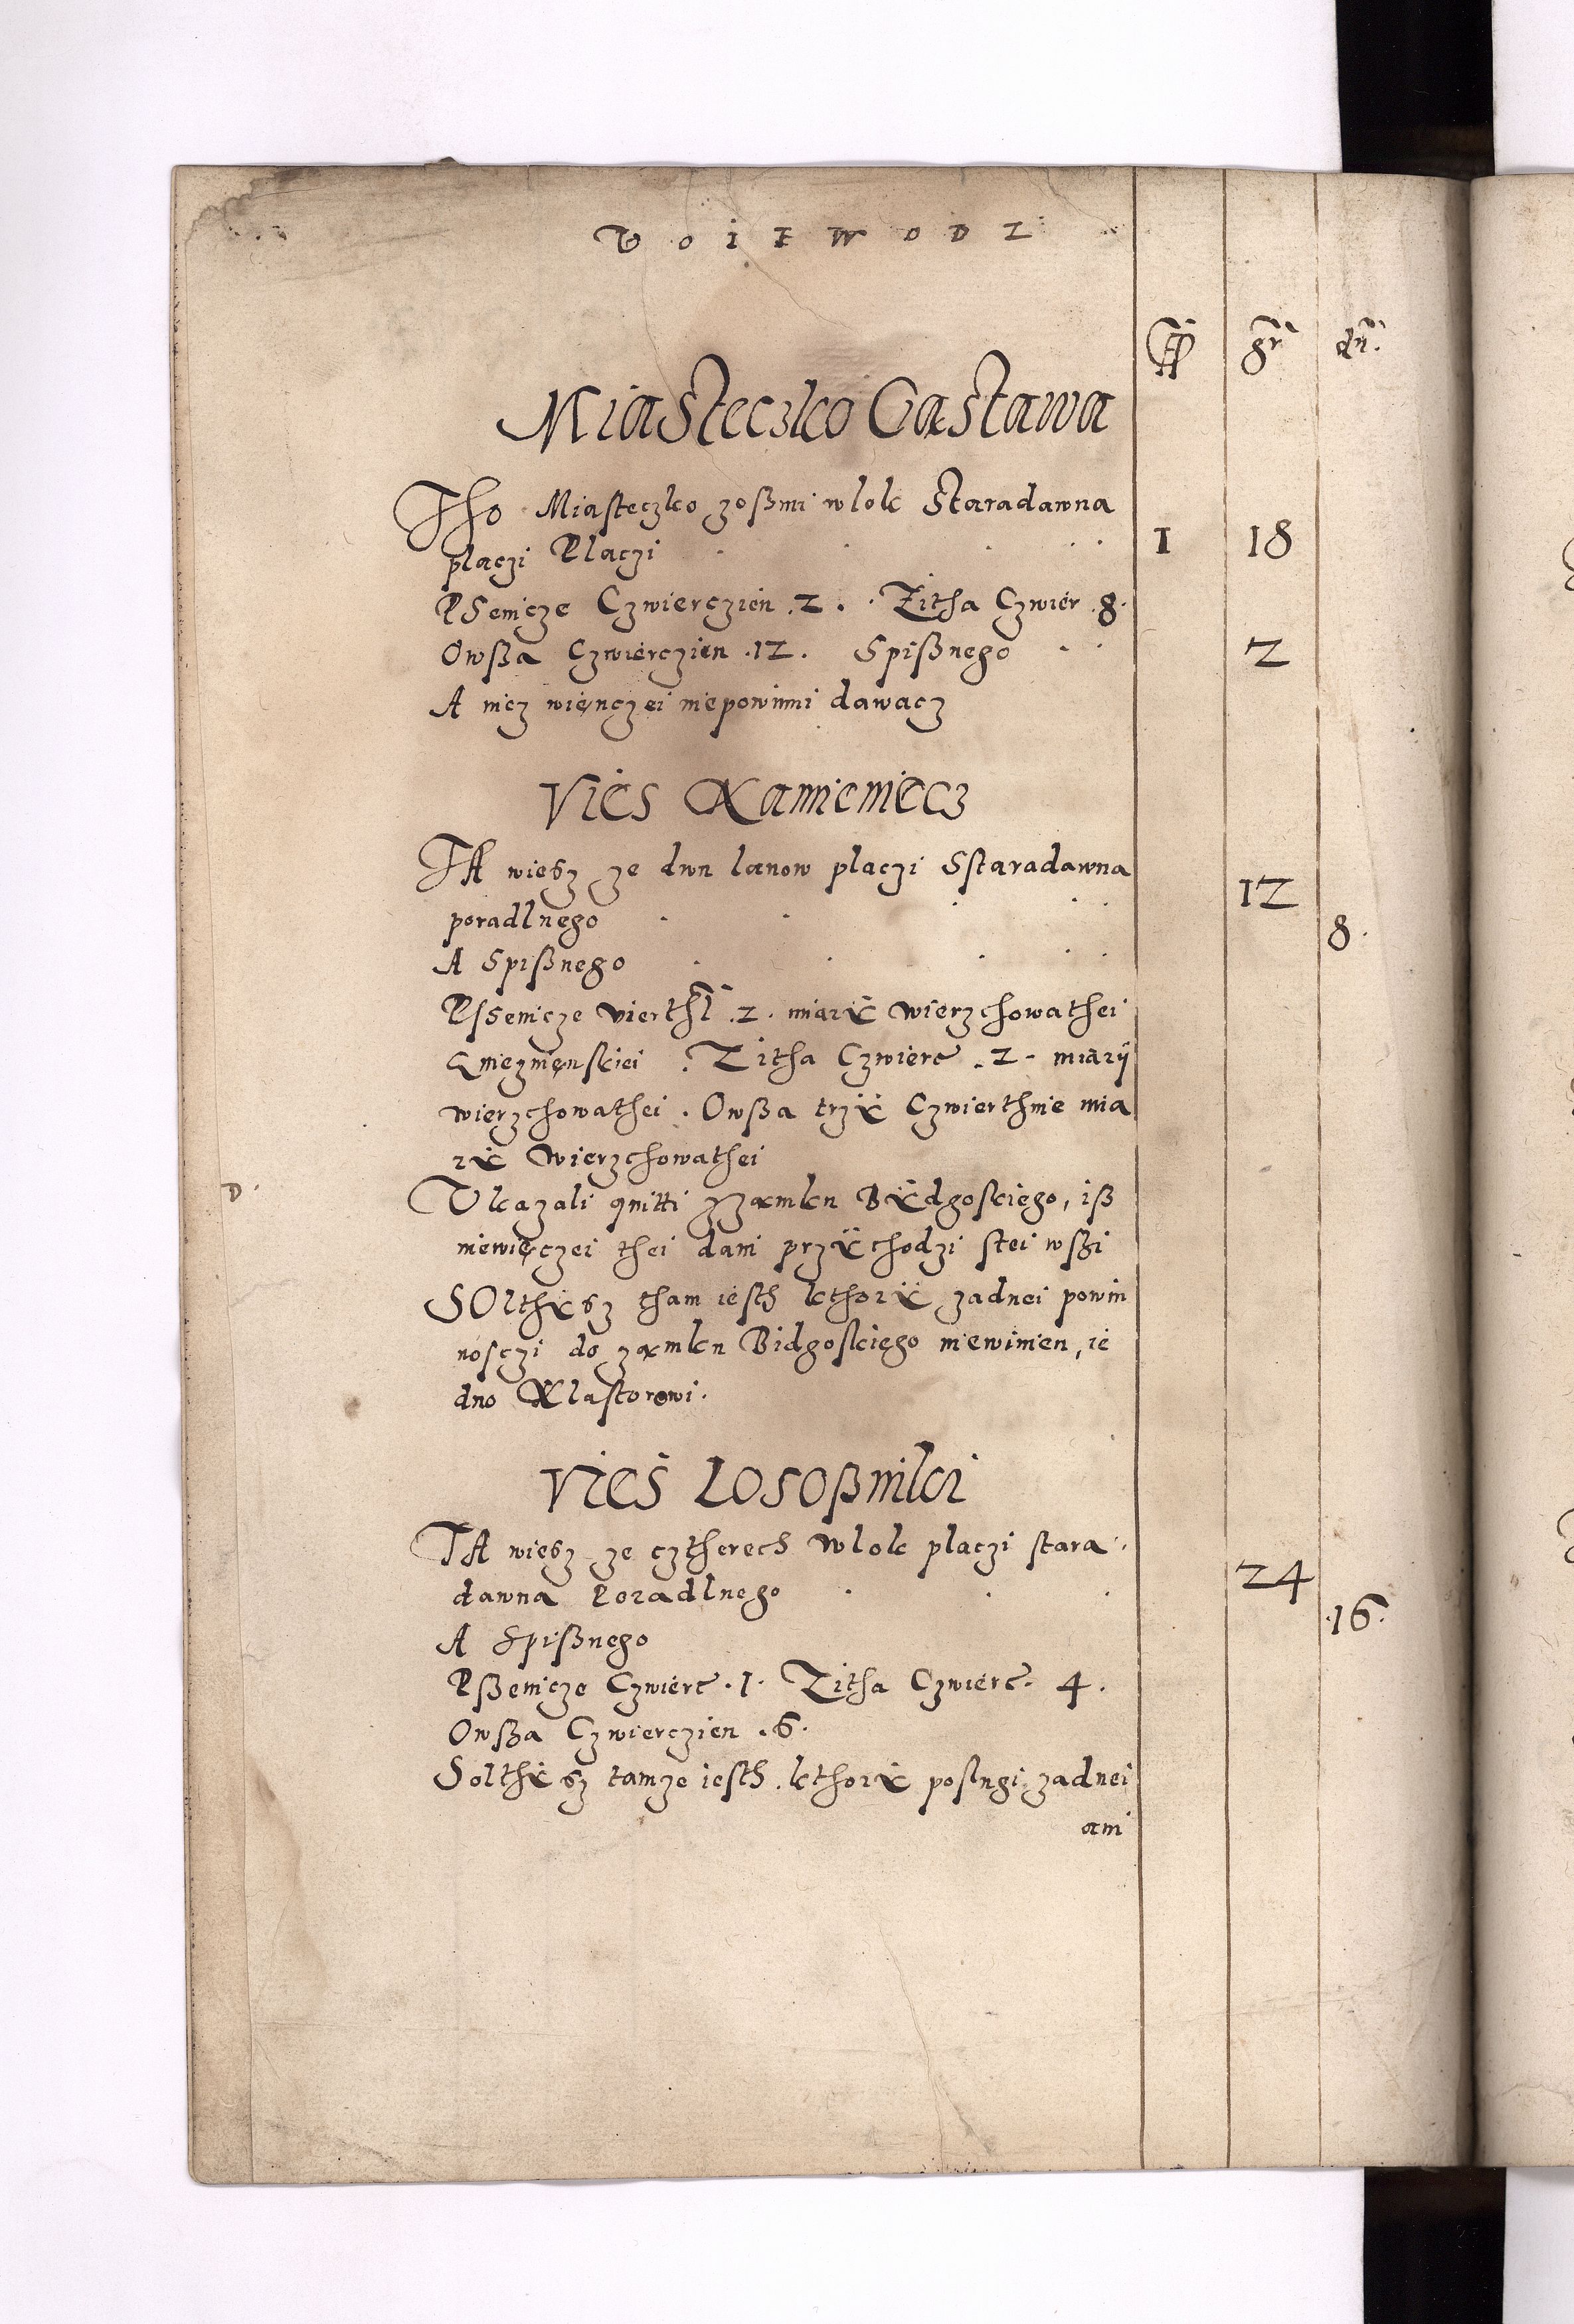 VOIEWODZ
gr dn.
Miasteczko Gąstawa
Tho Miasteczko zoßmi wlok Staradawna
placzi Placzi 1 18
PSenicze Czwierczien .2. Zitha Czwier .8.
Owßa Czwierczien .12. Spißnego 2
A nicz wienczei niepowinni dawacz
Vies Kamieniecz
TA wiesz ze dwu lanow placzi Sstaradawna
poradlnego 12
A Spißnego 8.
PSsenicze vierthl .2. miarÿ wierzchowathei
Gnieznienskiei . Zitha Czwierc .2. miarÿ
wierzchowathei . Owßa trzÿ Czwierthnie mia
rÿ wierzchowathei
D.
Vkazali quitti zzamku Bÿdgoskiego, iß
niewięczei thei dani przÿchodzi stei wßi
SOlthÿsz tham iesth kthorÿ zadnei powin
nosczi do zamku Bidgoskiego niewinien, ie
dno Klastorowi.
Vies Losoßniki
TA wiesz ze cztherech wlok placzi stara
dawna Poradlnego 24
A Spißnego .16.
Pßenicze Czwierc .1. Zitha Czwierc. 4.
Owßa Czwierczien .6.
Solthÿsz tamze iesth kthorÿ poslugi zadnei
ani